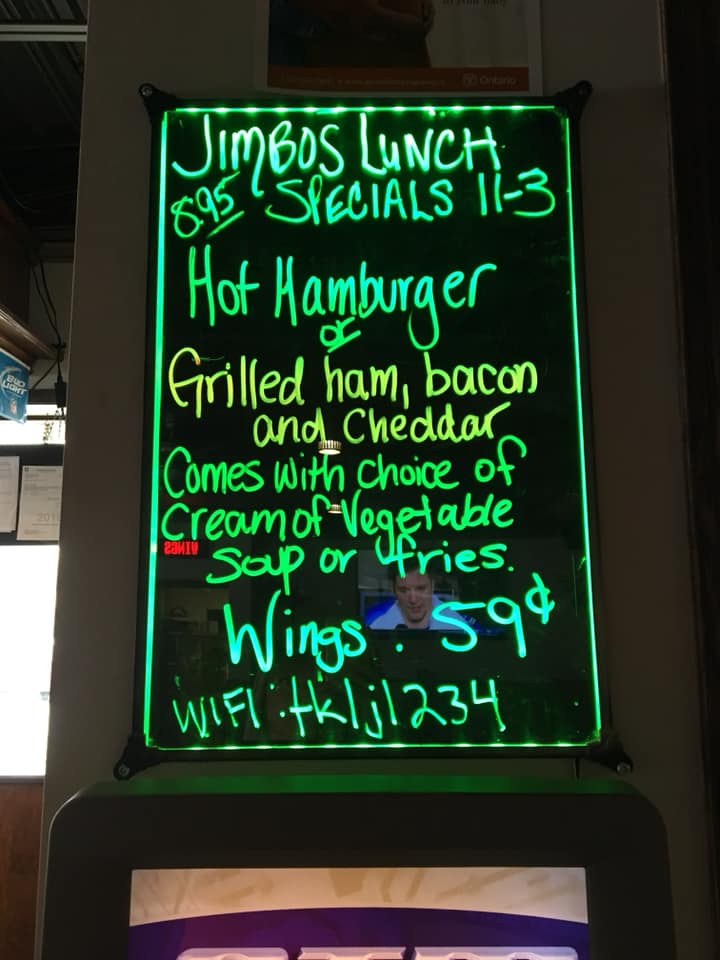 Ontario
JIMBOS LUNCH
8.95 SPECIALS 11-3
Hot Hamburger
or
Grilled ham, bacon
and Cheddar
Comes with choice of
Cream of Vegetable
Soup or fries.
Wings . 59¢
WIFI : tkljl234
BUD
LIGHT
WINGS